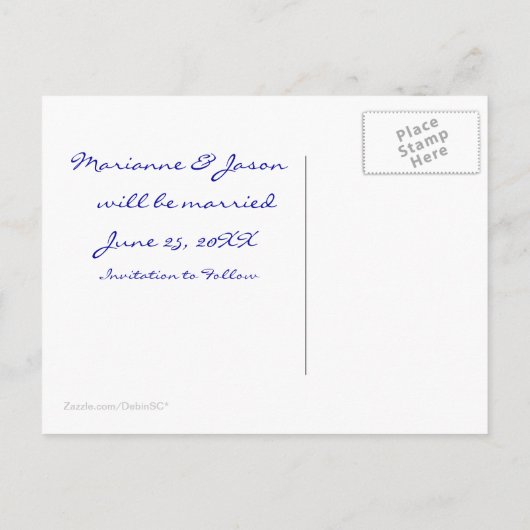 Marianne & Jason
will be married
June 25, 20XX
Invitation to Follow
Place
Stamp
Here
Zazzle.com/DebinSC*